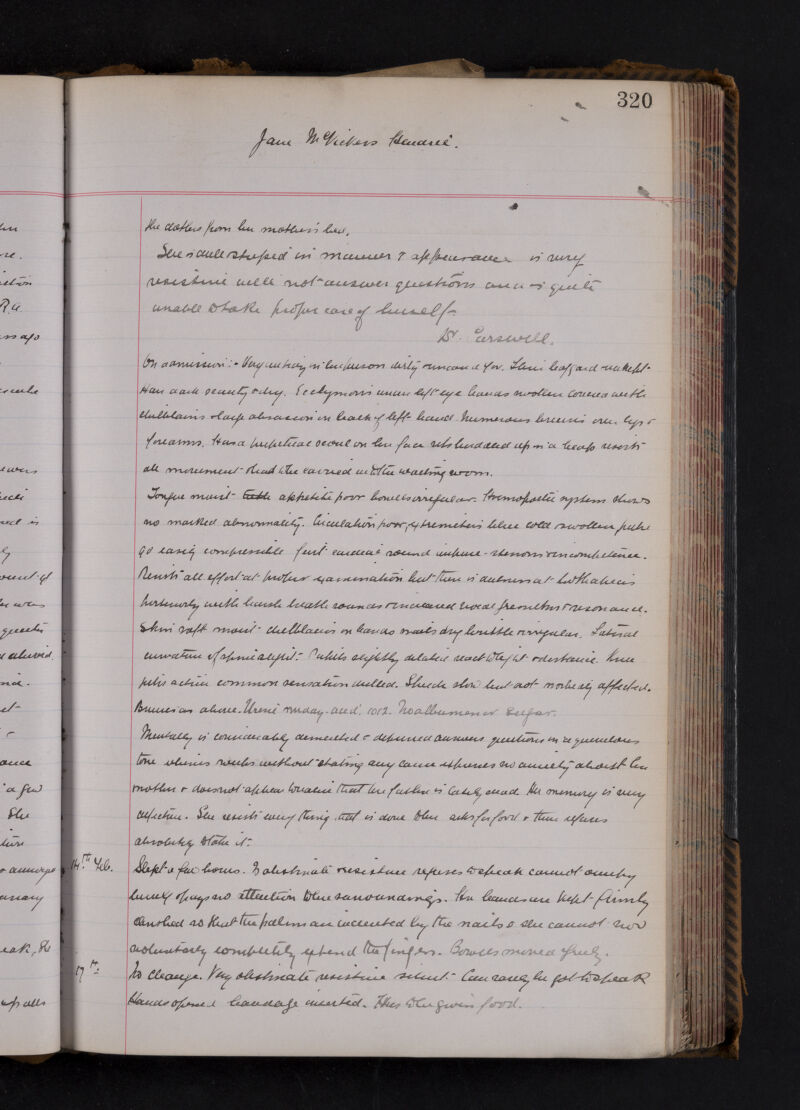 320
Jane McVickers
the clothes from her mother's bed.
She is dull & stupid in manner & appearance is very
resistive will not answer questions and is quite
unable to take proper care of herself-
Dr. Carswell.
On admission:- Very untidy in her person dirty
Hair dark scanty & dry. Ecchymosis under left eye hands swollen covered with
chilblains & large abrasion on back of left hand. Numerous bruises over legs &
forearms. Has a perpetual scowl on her face sits huddled up in a heap resists
all movement & had to be carried into the waiting room.
Tongue moist- teeth appetite poor bowels irregular. Haemopoietic system shows
no marked abnormality. Circulation poor, extremities blue cold & swollen pulse
90 easily compressible first cardiac sound impure - stenosis & incompetence.
Resists all effort at proper examination but there is dulness at both apices
posteriorly with harsh breath sounds & increased vocal fremitus & resonance.
Skin soft moist- chilblains on hands nails dry brittle & irregular. Lateral
curvature of spine slight- Pupils slightly dilated react to light & distance. Knee
jerks active common sensation dulled. Speech slow but not markedly affected.
Bruises as above. Urine acid. 1012. No albumen or sugar.
Mentally is considerably demented & depressed answers questions in a querulous
tone whines weeps without stating any cause expresses no anxiety about her
mother & does not appear to realise that her father is lately dead. Her memory is very
defective. She resists every thing that is done to her asks for food & then refuses
absolutely to take it-
14th Feb. Slept a few hours. Is obstinate & resistive refuses to speak cannot occupy
herself & pays no attention to her surroundings. Her hands are kept firmly
clenched so that the palms are indented by the nails & she cannot now
voluntarily completely extend the fingers. Bowels moved freely.
17th No change. Very obstinate resistive silent- Can rarely be got to speak
Hands opened bandage inserted. Has to be given food.